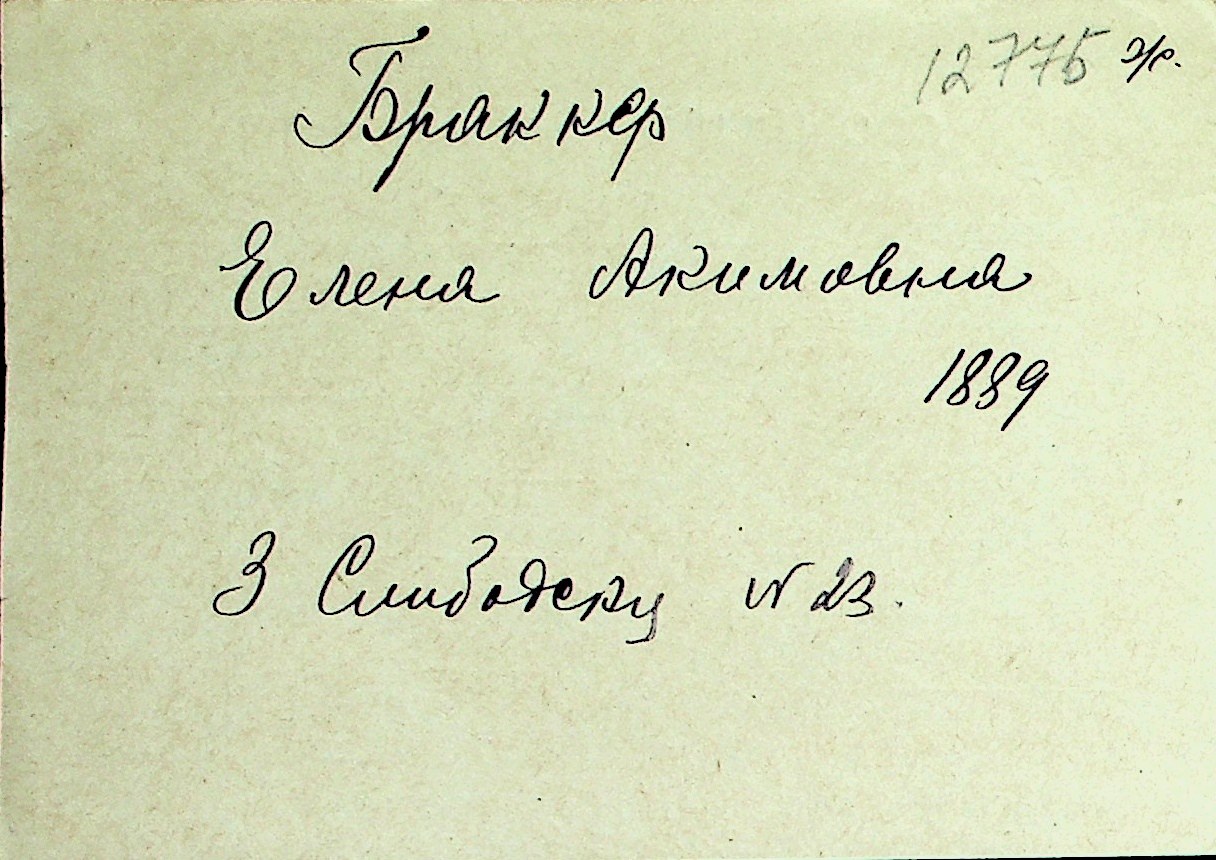 12775 э/о.
Браккер
Елена Акимовна
1889
3 Слободску № 23.